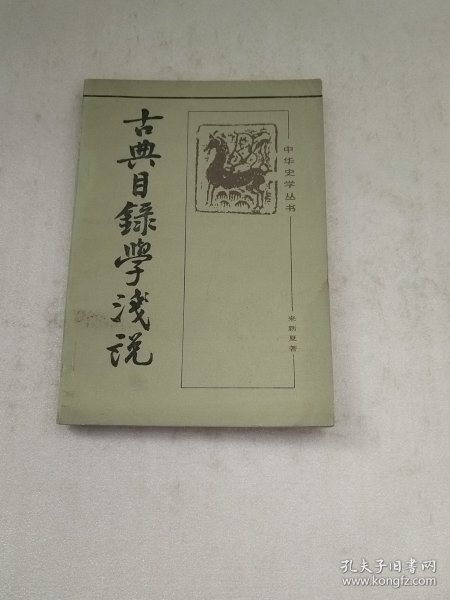 古典目録學淺説
中华史学丛书
来新夏著
孔夫子旧书网
www.kongfz.com